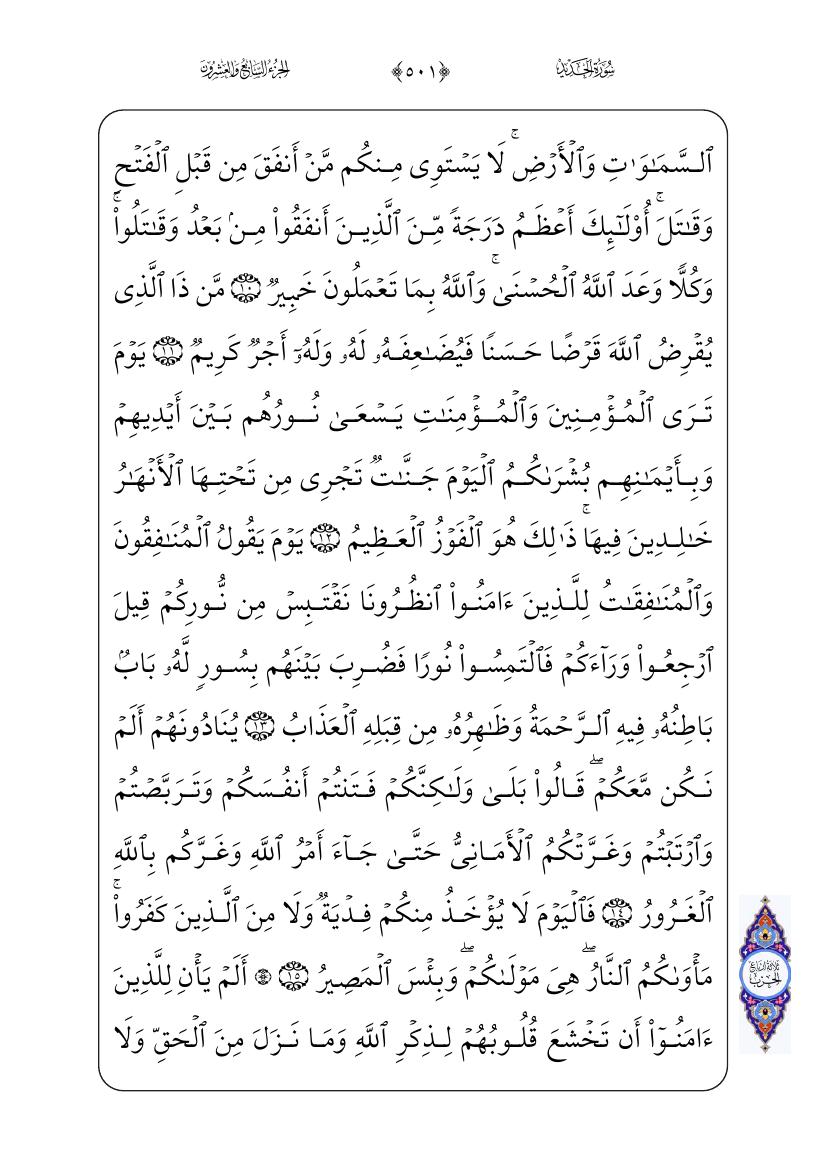 سُورَةُ الحَدِيدِ
﴿٥٠١﴾
الجُزْءُ السَّابِعُ وَالعِشْرُونَ
ٱلسَّمَٰوَٰتِ وَٱلْأَرْضِۚ لَا يَسْتَوِى مِنكُم مَّنْ أَنفَقَ مِن قَبْلِ ٱلْفَتْحِ
وَقَٰتَلَۚ أُو۟لَٰٓئِكَ أَعْظَمُ دَرَجَةً مِّنَ ٱلَّذِينَ أَنفَقُوا۟ مِنۢ بَعْدُ وَقَٰتَلُوا۟ۚ
وَكُلًّا وَعَدَ ٱللَّهُ ٱلْحُسْنَىٰۚ وَٱللَّهُ بِمَا تَعْمَلُونَ خَبِيرٌ ١٠ مَّن ذَا ٱلَّذِى
يُقْرِضُ ٱللَّهَ قَرْضًا حَسَنًا فَيُضَٰعِفَهُۥ لَهُۥ وَلَهُۥٓ أَجْرٌ كَرِيمٌ ١١ يَوْمَ
تَرَى ٱلْمُؤْمِنِينَ وَٱلْمُؤْمِنَٰتِ يَسْعَىٰ نُورُهُم بَيْنَ أَيْدِيهِمْ
وَبِأَيْمَٰنِهِم بُشْرَىٰكُمُ ٱلْيَوْمَ جَنَّٰتٌ تَجْرِى مِن تَحْتِهَا ٱلْأَنْهَٰرُ
خَٰلِدِينَ فِيهَاۚ ذَٰلِكَ هُوَ ٱلْفَوْزُ ٱلْعَظِيمُ ١٢ يَوْمَ يَقُولُ ٱلْمُنَٰفِقُونَ
وَٱلْمُنَٰفِقَٰتُ لِلَّذِينَ ءَامَنُوا۟ ٱنظُرُونَا نَقْتَبِسْ مِن نُّورِكُمْ قِيلَ
ٱرْجِعُوا۟ وَرَآءَكُمْ فَٱلْتَمِسُوا۟ نُورًا فَضُرِبَ بَيْنَهُم بِسُورٍ لَّهُۥ بَابٌۢ
بَاطِنُهُۥ فِيهِ ٱلرَّحْمَةُ وَظَٰهِرُهُۥ مِن قِبَلِهِ ٱلْعَذَابُ ١٣ يُنَادُونَهُمْ أَلَمْ
نَكُن مَّعَكُمْۖ قَالُوا۟ بَلَىٰ وَلَٰكِنَّكُمْ فَتَنتُمْ أَنفُسَكُمْ وَتَرَبَّصْتُمْ
وَٱرْتَبْتُمْ وَغَرَّتْكُمُ ٱلْأَمَانِىُّ حَتَّىٰ جَآءَ أَمْرُ ٱللَّهِ وَغَرَّكُم بِٱللَّهِ
ٱلْغَرُورُ ١٤ فَٱلْيَوْمَ لَا يُؤْخَذُ مِنكُمْ فِدْيَةٌ وَلَا مِنَ ٱلَّذِينَ كَفَرُوا۟ۚ
مَأْوَىٰكُمُ ٱلنَّارُۖ هِىَ مَوْلَىٰكُمْۖ وَبِئْسَ ٱلْمَصِيرُ ١٥ ۞ أَلَمْ يَأْنِ لِلَّذِينَ
ءَامَنُوٓا۟ أَن تَخْشَعَ قُلُوبُهُمْ لِذِكْرِ ٱللَّهِ وَمَا نَزَلَ مِنَ ٱلْحَقِّ وَلَا
ثلاثة أرباع
الحزب